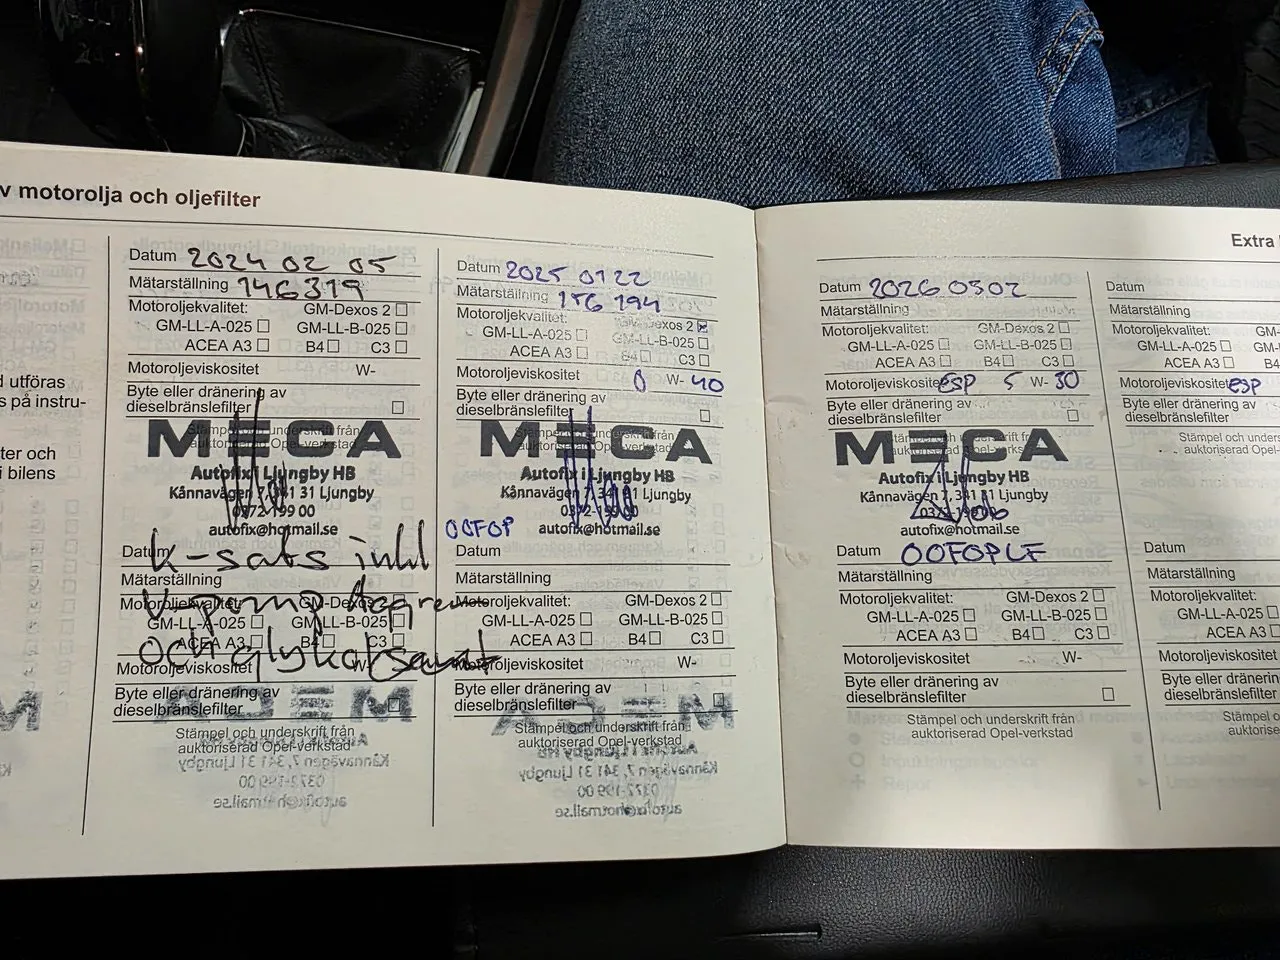 v motorolja och oljefilter
d utföras
s på instru-
ter och
i bilens
Datum 2024 02 05
Mätarställning 146319
Motoroljekvalitet: GM-Dexos 2
GM-LL-A-025 GM-LL-B-025
ACEA A3 B4 C3
Motoroljeviskositet W-
Byte eller dränering av
dieselbränslefilter
Stämpel och underskrift från
auktoriserad Opel-verkstad
MECA
Autofix i Ljungby HB
Kånnavägen 7, 341 31 Ljungby
0372-199 00
autofix@hotmail.se
k-sats inkl
Datum
Mätarställning
Motoroljekvalitet: GM-Dexos
GM-LL-A-025 GM-LL-B-025
och glykol
ACEA A3 B4 C3
Motoroljeviskositet W-
Byte eller dränering av
dieselbränslefilter
Stämpel och underskrift från
auktoriserad Opel-verkstad
Datum 2025 01 22
Mätarställning 156 194
Motoroljekvalitet: Dexos 2
GM-LL-A-025 GM-LL-B-025
ACEA A3 B4 C3
Motoroljeviskositet 0 W- 40
Byte eller dränering av
dieselbränslefilter
Stämpel och underskrift från
auktoriserad Opel-verkstad
MECA
Autofix i Ljungby HB
Kånnavägen 7, 341 31 Ljungby
0372-199 00
OOFOP autofix@hotmail.se
Datum
Mätarställning
Motoroljekvalitet: GM-Dexos 2
GM-LL-A-025 GM-LL-B-025
ACEA A3 B4 C3
Motoroljeviskositet W-
Byte eller dränering av
dieselbränslefilter
Stämpel och underskrift från
auktoriserad Opel-verkstad
Extra
Datum 2026 03 02
Mätarställning
Motoroljekvalitet: GM-Dexos 2
GM-LL-A-025 GM-LL-B-025
ACEA A3 B4 C3
Motoroljeviskositet ESP 5 W- 30
Byte eller dränering av
dieselbränslefilter
Stämpel och underskrift fr
auktoriserad Opel-verkstad
MECA
Autofix i Ljungby HB
Kånnavägen 7, 341 31 Ljungby
autofix@hotmail.se
Datum OOFOPLF
Mätarställning
Motoroljekvalitet: GM-Dexos 2
GM-LL-A-025 GM-LL-B-025
ACEA A3 B4 C3
Motoroljeviskositet W-
Byte eller dränering av
dieselbränslefilter
Stämpel och underskrift från
auktoriserad Opel-verkstad
Datum
Mätarställning
Motoroljekvalitet: GM-
GM-LL-A-025 GM-L
ACEA A3 B4
Motoroljeviskositet ESP
Byte eller dränering av
dieselbränslefilter
Stämpel och under
auktoriserad Opel-
Datum
Mätarställning
Motoroljekvalitet: G
GM-LL-A-025 GM
ACEA A3
Motoroljeviskositet
Byte eller dränering av
dieselbränslefilter
Stämpel och u
auktoriserad O